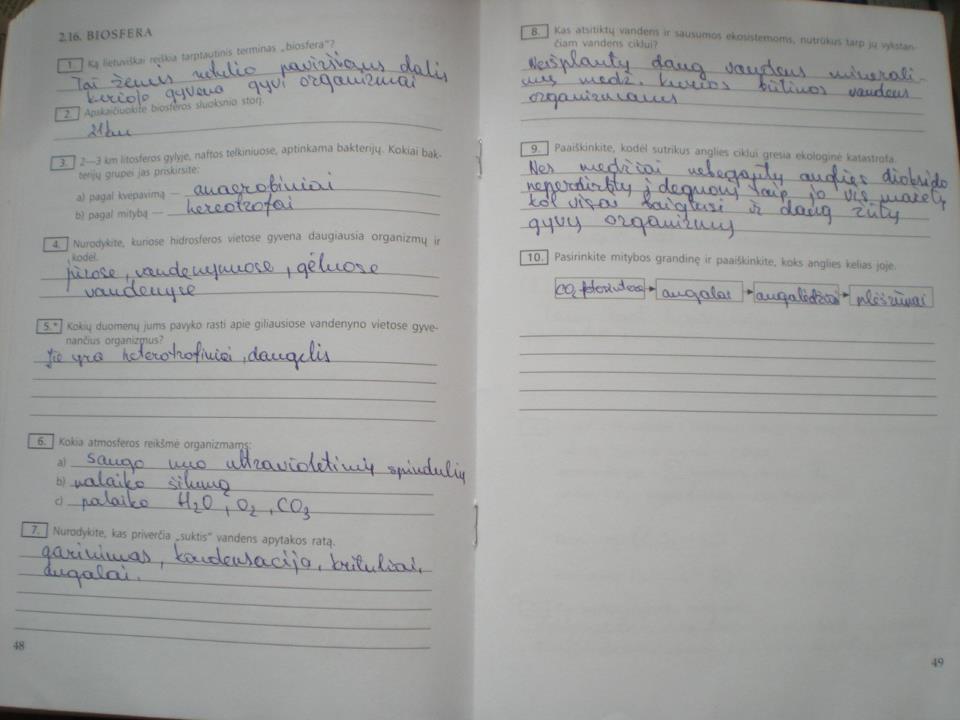 2.16. BIOSFERA
1. Ką lietuviškai reiškia tarptautinis terminas „biosfera"?
Tai žemės rutulio paviršiaus dalis
kurioje gyvena gyvi organizmai
2. Apskaičiuokite biosferos sluoksnio storį.
21km
3. 2—3 km litosferos gylyje, naftos telkiniuose, aptinkama bakterijų. Kokiai bak-
terijų grupei jas priskirsite:
a) pagal kvėpavimą — anaerobiniai
b) pagal mitybą — hereotrofai
4. Nurodykite, kuriose hidrosferos vietose gyvena daugiausia organizmų ir
kodėl.
jūrose, vandenynuose, gėluose
vandenyse
5.* Kokių duomenų jums pavyko rasti apie giliausiose vandenyno vietose gyve-
nančius organizmus?
Jie yra heterotrofiniai, daugelis
6. Kokia atmosferos reikšmė organizmams:
a) saugo nuo ultravioletinių spindulių
b) palaiko šilumą
c) palaiko H2O, O2, CO3
7. Nurodykite, kas priverčia „suktis" vandens apytakos ratą.
garinimas, kondensacija, krituliai,
augalai.
48
8. Kas atsitiktų vandens ir sausumos ekosistemoms, nutrūkus tarp jų vykstan-
čiam vandens ciklui?
Neišplautų daug vandens minerali-
nių medž. kurios būtinos vandens
organizmams
9. Paaiškinkite, kodėl sutrikus anglies ciklui gresia ekologinė katastrofa.
Nes medžiai nebegautų anglies dioksido
neperdirbtų į deguonį taip jo vis mažėtų
kol visai baigtusi ir daug žūtų
gyvų organizmų
10. Pasirinkite mitybos grandinę ir paaiškinkite, koks anglies kelias joje.
CO2 → augalas → augalėdžiai → plėšrūnai
49